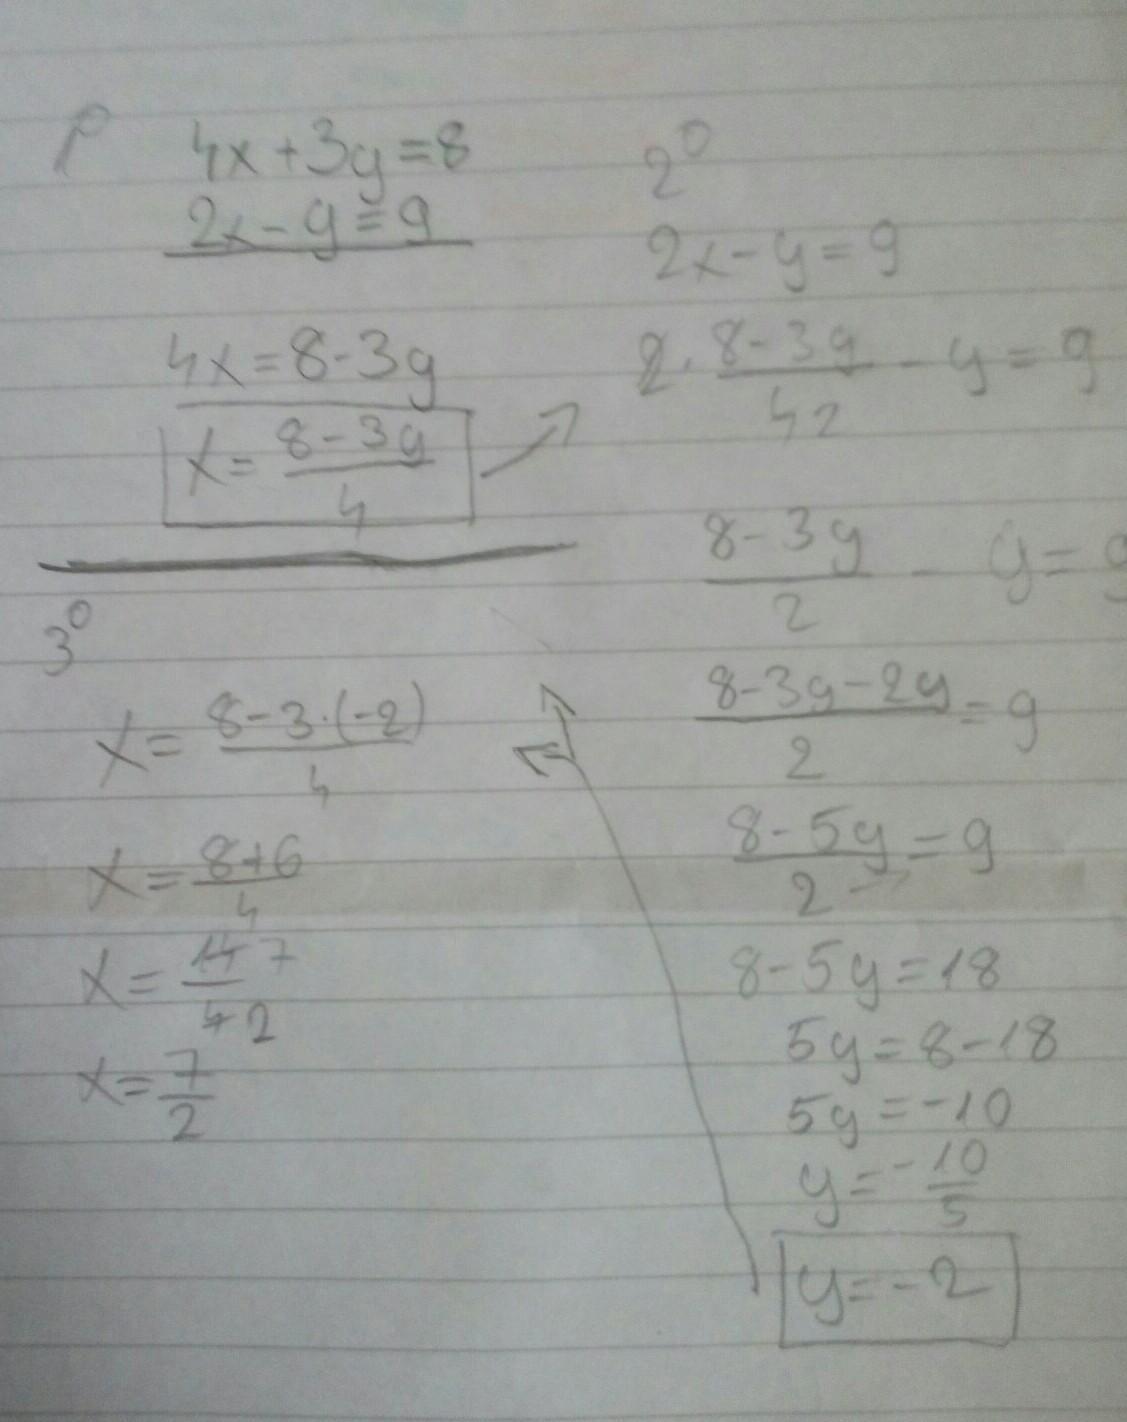 1º
4x+3y=8
2x-y=9
4x=8-3y
x=\frac{8-3y}{4}
2º
2x-y=9
2·\frac{8-3y}{42}-y=9
\frac{8-3y}{2}-y=9
\frac{8-3y-2y}{2}=9
\frac{8-5y}{2}=9
8-5y=18
5y=8-18
5y=-10
y=-\frac{10}{5}
y=-2
3º
x=\frac{8-3·(-2)}{4}
x=\frac{8+6}{4}
x=\frac{14 7}{4 2}
x=\frac{7}{2}